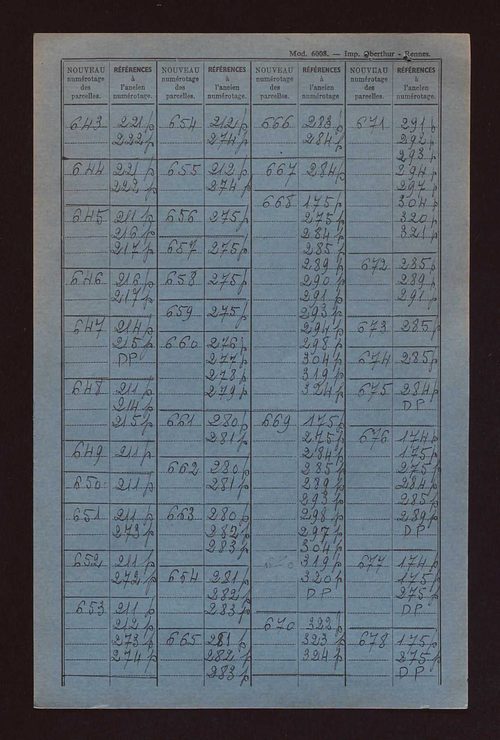 Mod. 6008. — Imp. Oberthur - Rennes.
NOUVEAU numérotage des parcelles.
RÉFÉRENCES à l'ancien numérotage.
NOUVEAU numérotage des parcelles.
RÉFÉRENCES à l'ancien numérotage.
NOUVEAU numérotage des parcelles.
RÉFÉRENCES à l'ancien numérotage.
NOUVEAU numérotage des parcelles.
RÉFÉRENCES à l'ancien numérotage.
643 221 p
222 p
644 221 p
222 p
645 211 p
216 p
217 p
646 216 p
217 p
647 214 p
215 p
DP
648 211 p
214 p
215 p
649 211 p
650 211 p
651 211 p
273 p
652 211 p
272 p
653 211 p
212 p
273 p
274 p
654 212 p
274 p
655 212 p
274 p
656 275 p
657 275 p
658 275 p
659 275 p
660 276 p
277 p
278 p
279 p
661 280 p
281 p
662 280 p
281 p
663 280 p
282 p
283 p
664 281 p
282 p
283 p
665 281 p
282 p
283 p
666 283 p
284 p
667 284 p
668 175 p
275 p
284 p
285 p
289 p
290 p
291 p
293 p
294 p
298 p
304 p
319 p
324 p
669 175 p
275 p
284 p
285 p
289 p
293 p
298 p
297 p
304 p
319 p
320 p
DP
670 322 p
323 p
324 p
671 291 p
292 p
293 p
294 p
297 p
304 p
320 p
321 p
672 285 p
289 p
291 p
673 285 p
674 285 p
675 284 p
DP
676 174 p
175 p
275 p
284 p
285 p
289 p
DP
677 174 p
175 p
275 p
DP
678 175 p
275 p
DP